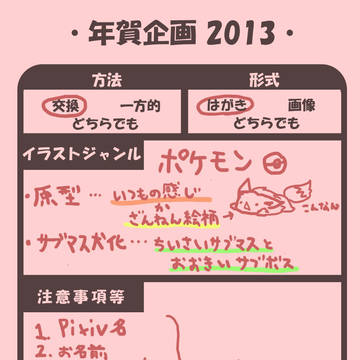 ・年賀企画 2013・
方法 形式
交換 一方的 はがき 画像
どちらでも どちらでも
イラストジャンル ポケモン
・原型…いつもの感じ
か
ざんねん絵柄→ こんなん
・サブマス犬化…ちいさいサブマスと
おおきいサブボス
注意事項等
1. Pixiv名
2. お名前